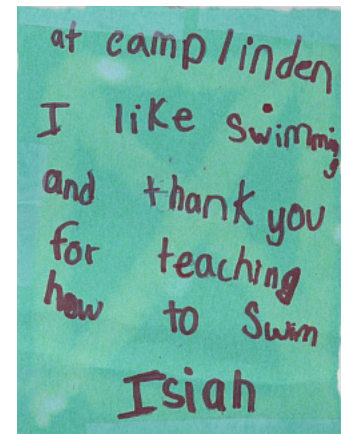 at camp linden
I like swimming
and thank you
for teaching
how to swim
Isiah